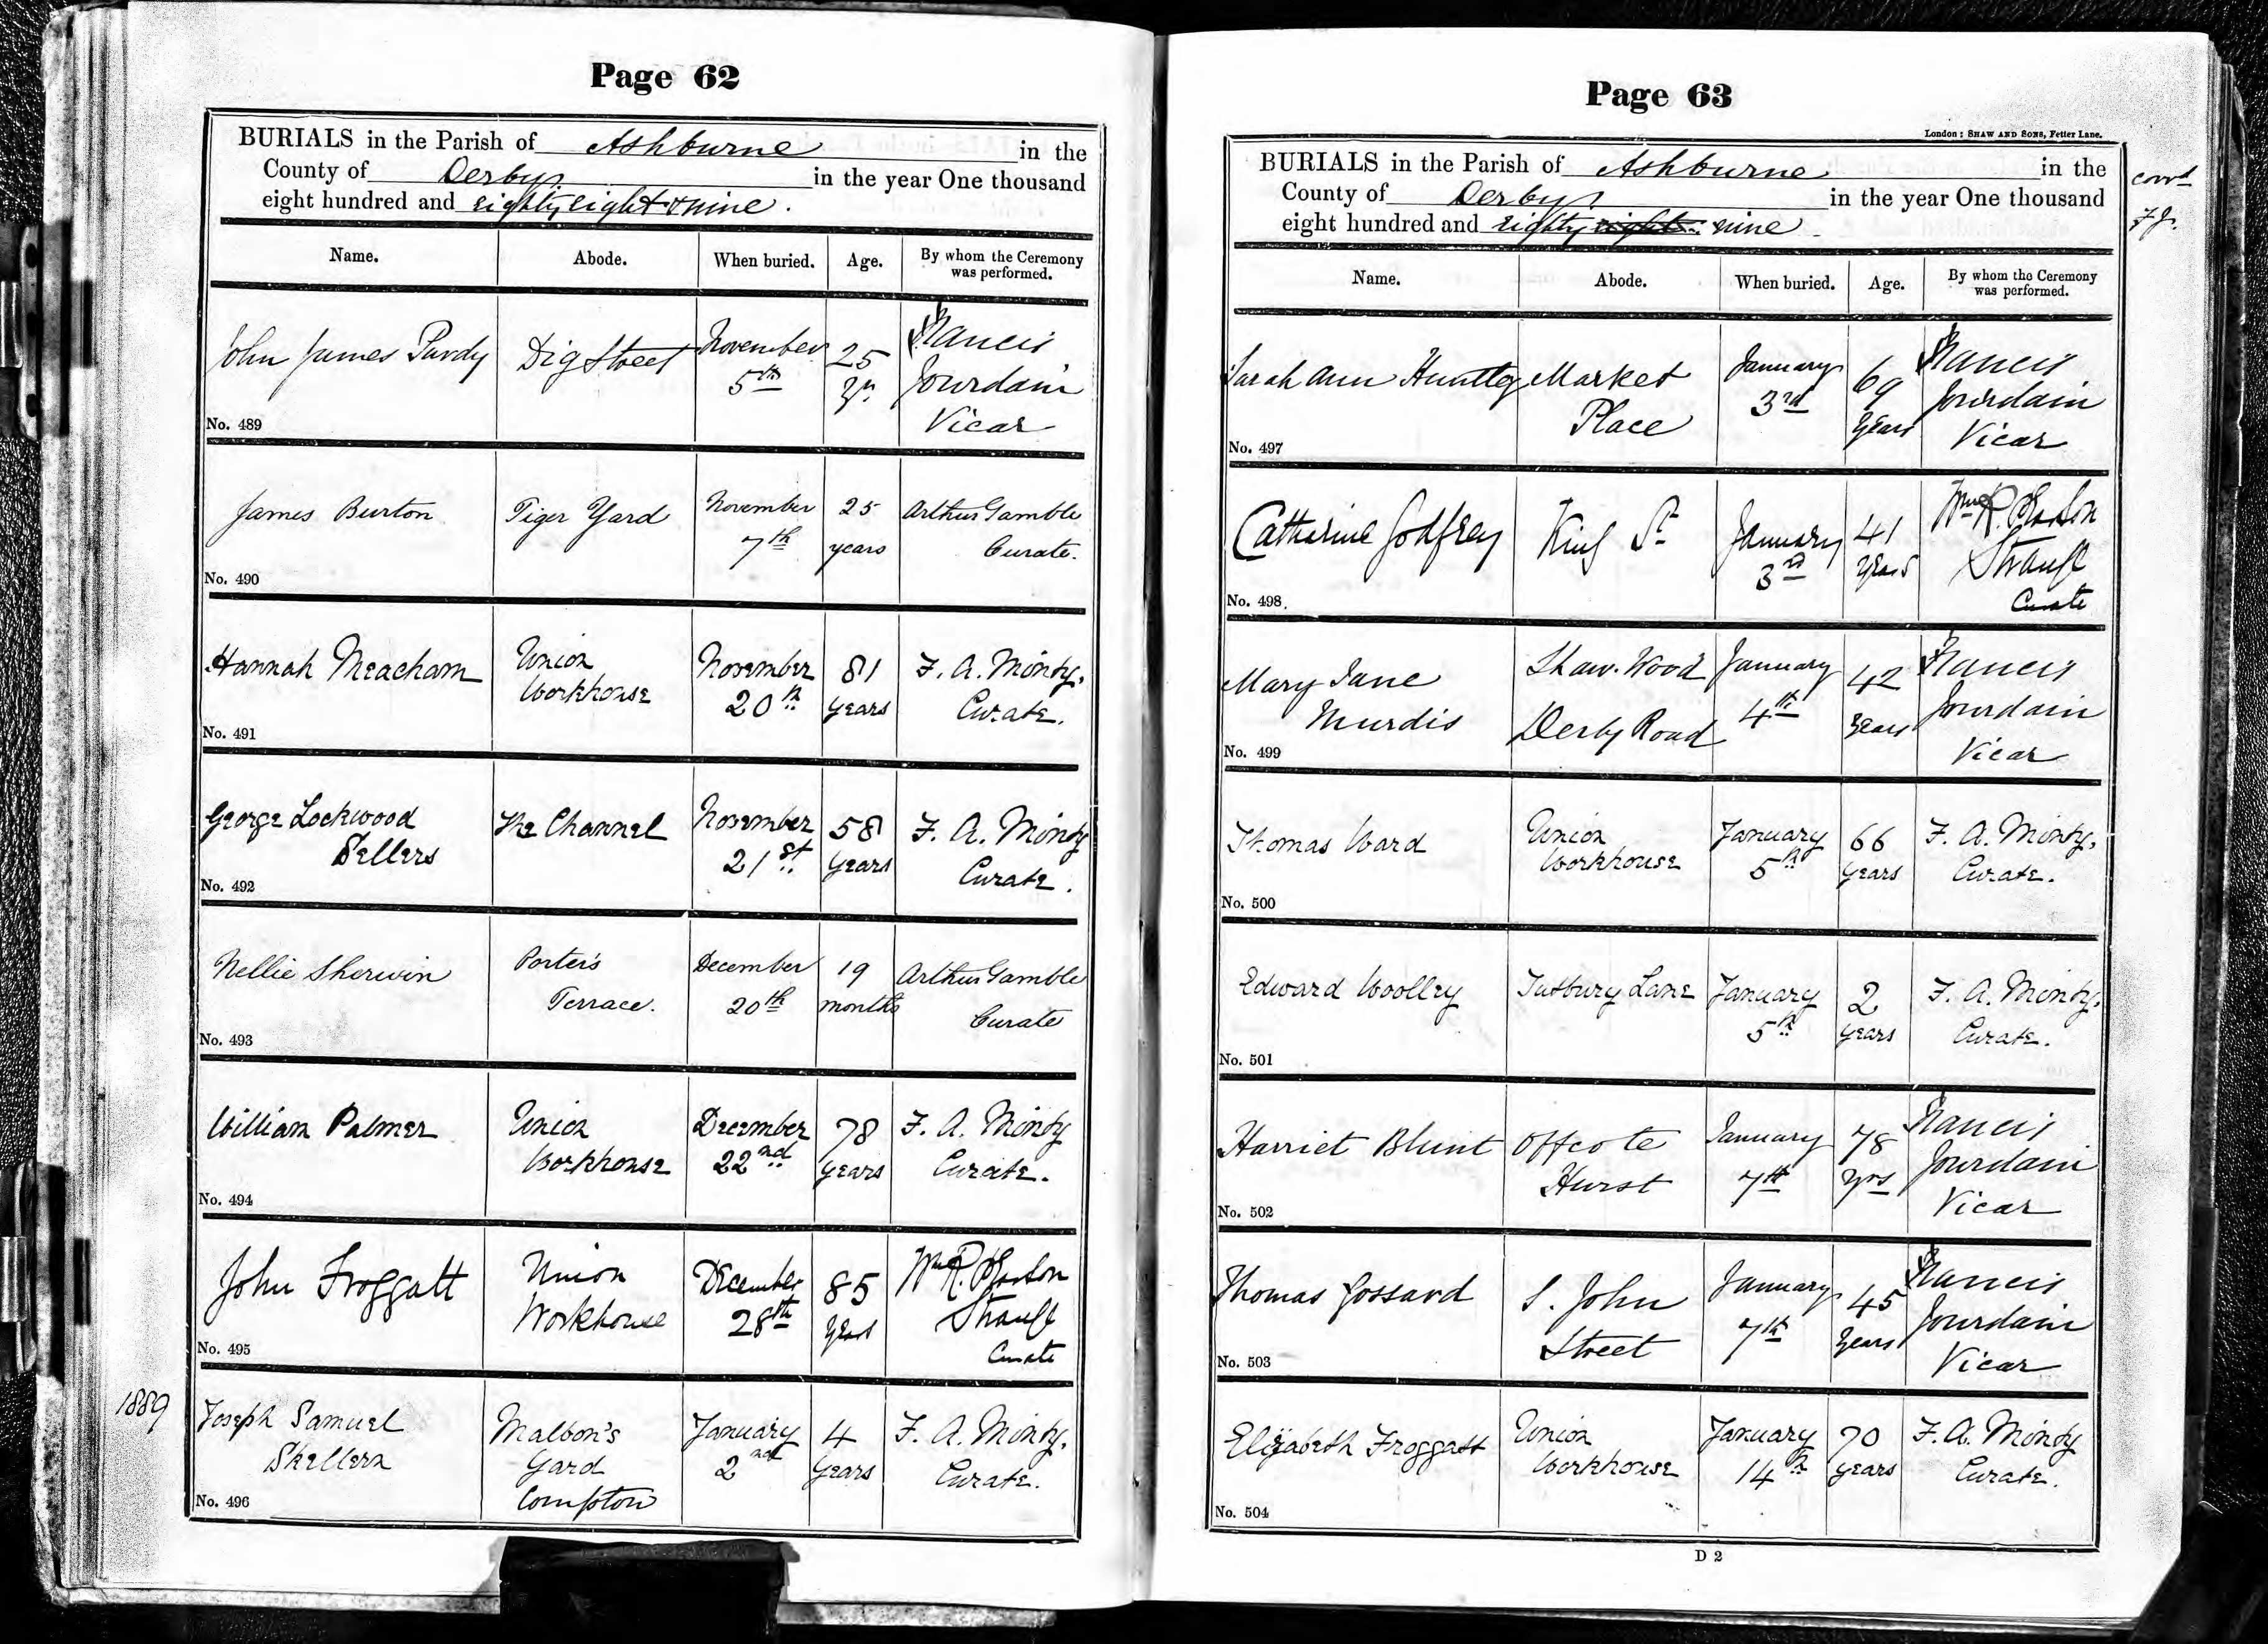 Page 62
BURIALS in the Parish of Ashburne in the
County of Derby in the year One thousand
eight hundred and eighty eight & nine.
Name. Abode. When buried. Age. By whom the Ceremony was performed.
John James Purdy Dig Street November 5th 25 yrs Francis Jourdain Vicar
No. 489
James Burton Tiger Yard November 7th 25 years Arthur Gamble Curate.
No. 490
Hannah Meacham Union Workhouse November 20th 81 years F. A. Minty. Curate.
No. 491
George Lockwood Sellers The Channel November 21st. 58 years F. A. Minty Curate.
No. 492
Nellie Sherwin Porter's Terrace. December 20th 19 months Arthur Gamble Curate
No. 493
William Palmer Union Workhouse December 22nd 78 years F. A. Minty Curate.
No. 494
John Froggatt Union Workhouse December 28th 85 years Wm R. Curate
No. 495
1889
Joseph Samuel Skellern Malbon's Yard Compton January 2nd 4 years F. A. Minty. Curate.
No. 496
Page 63
London: SHAW AND SONS, Fetter Lane.
BURIALS in the Parish of Ashburne in the
County of Derby in the year One thousand
eight hundred and eighty eight nine
corrd
F J.
Name. Abode. When buried. Age. By whom the Ceremony was performed.
Sarah Ann Huntley Market Place January 3rd 69 years Francis Jourdain Vicar
No. 497
Catharine Godfrey King St January 3rd 41 years Wm R. Curate
No. 498.
Mary Jane Murdis Shaw. Wood Derby Road January 4th 42 years Francis Jourdain Vicar
No. 499
Thomas Ward Union Workhouse January 5th 66 years F. A. Minty. Curate.
No. 500
Edward Woolley Tutbury Lane January 5th 2 years F. A. Minty. Curate.
No. 501
Harriet Blunt Offcote Hurst January 7th 78 yrs Francis Jourdain Vicar
No. 502
Thomas Gossard S. John Street January 7th 45 years Francis Jourdain Vicar
No. 503
Elizabeth Froggatt Union Workhouse January 14th 70 years F. A. Minty Curate.
No. 504
D 2